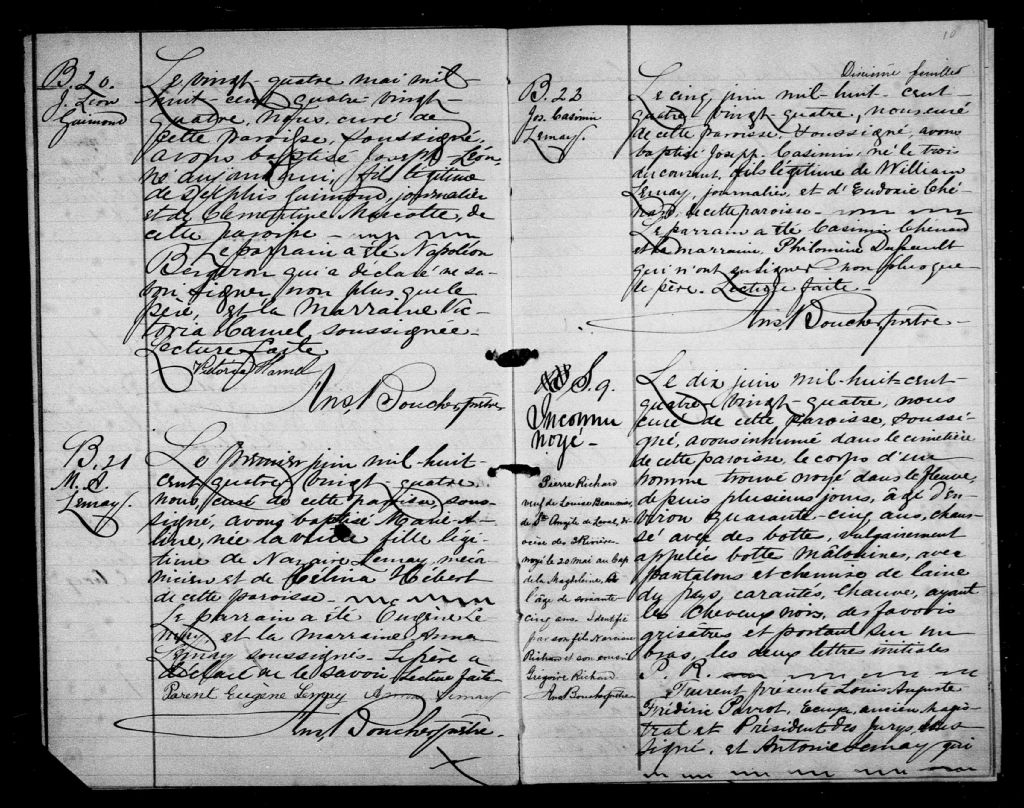 B. 20.
J. Léon
Guimond
Le vingt-quatre mai mil
huit-cent quatre-vingt-
quatre, nous, curé de
cette paroisse, soussigné,
avons baptisé Joseph Léon,
né aujourd'hui, fils légitime
de Delphis Guimond, journalier
et de Clémentine Marcotte, de
cette paroisse -
Le parrain a été Napoléon
Bergeron qui a déclaré ne sa-
voir signer non plus que le
père, et la Marraine Vic-
toria Hamel soussignée.
Lecture faite
Victoria Hamel
Ans. Boucher, ptre
B. 21
M. A.
Lemay.
Le premier juin mil-huit-
cent quatre vingt quatre
nous, curé de cette paroisse sous-
signé, avons baptisé Marie A-
née la veille fille légi-
time de Nazaire Lemay, méca-
nicien et de Célina Hébert
de cette paroisse
Le parrain a été Eugène Le
may et la marraine Anna
Lemay soussignés. Le père a
déclaré ne le savoir Lecture faite
Parent Eugène Lemay Anna Lemay
Ans. Boucher, ptre.
10
Dixième feuillet
B. 22
Jos. Casimir
Lemay.
Le cinq juin mil-huit-cent-
quatre-vingt-quatre, nous curé
de cette paroisse, soussigné, avons
baptisé Joseph-Casimir, né le trois
du courant, fils légitime de William
Lemay, journalier, et d'Eudoxie Ché-
nard, de cette paroisse -
Le parrain a été Casimir Chenard
et la marraine, Philomène Dusseault
qui n'ont su signer non plus que
le père. Lecture faite -
Ans. Boucher, ptre -
S. 9.
Inconnu
noyé -
Pierre Richard
veuf de Louise Beaumier,
de Ste Angèle de Laval, di-
ocèse des 3 Rivières
noyé le 20 mai au Cap
de la Magdeleine, à
l'âge de soixante
cinq ans. Identifié
par son fils Narcisse
Richard et son cousin
Grégoire Richard
Ans Boucher ptre
Le dix juin mil-huit-cent
quatre vingt-quatre, nous
curé de cette paroisse, soussi-
gné, avons inhumé dans le cimetière
de cette paroisse, le corps d'un
homme trouvé noyé dans le fleuve,
depuis plusieurs jours, âgé d'en-
viron quarante-cinq ans, chaus-
sé avec des bottes, vulgairement
appelées botte malouines, avec
pantalons et chemise de laine
du pays, chauve, ayant
les cheveux noirs, des favoris
grisâtres et portant sur un
bras, les deux lettres initiales
P. R.
Furent présents Louis Auguste
Frédéric Ecuyer, ancien magis-
trat et Président des Jurys, sous-
signé, et Antoine Lemay qui